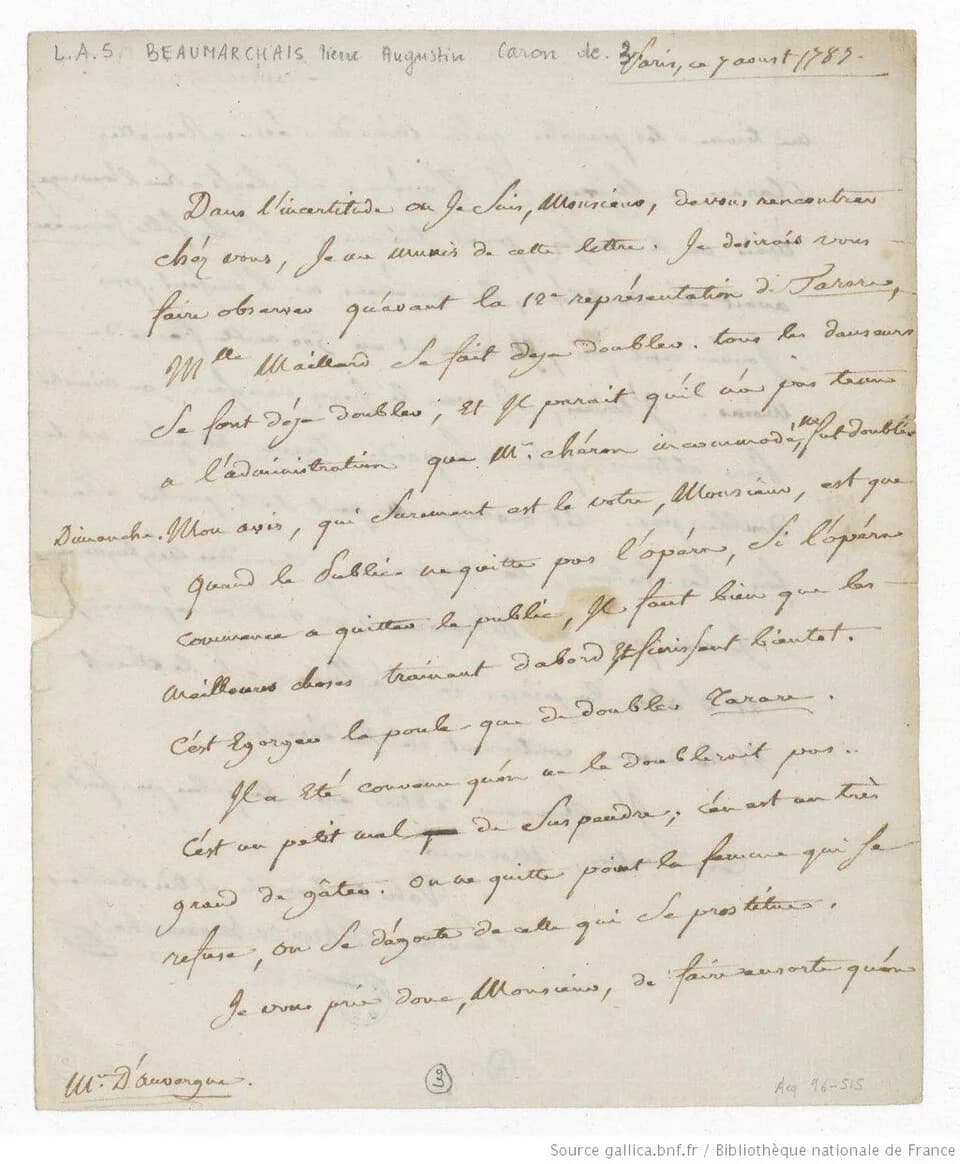 L.A.S. BEAUMARCHAIS Pierre Augustin Caron de. 3
Paris, ce 7 aoust 1787.
Dans l'incertitude ou Je Suis, Monsieur, de vous rencontrer
chéz vous, Je me munis de cette lettre. Je desirois vous
faire observer qu'avant la 12e représentation de Tarare,
Mlle Maillard Se fait deja doubler. tous les danseurs
Se font déja doubler; Et Il parait qu'il n'a pas tenu
a l'administration que Mr. chéron incommodé, ne fut doublé
Dimanche. Mon avis, qui Surement est le votre, Monsieur, est que
Quand le Public ne quitte pas l'opéra, Si l'opéra
commence a quitter le public, Il faut bien que les
meilleures choses trainent d'abord Et finissent bientot.
C'est Egorger la poule que de doubler Tarare.
Il a Eté convenu qu'on ne le doubleroit pas..
C'est un petit mal de Suspendre; c'en est un très
grand de gâter. On ne quitte point la femme qui Se
refuse, on Se dégoute de celle qui Se prostitue.
Je vous prie donc, Monsieur, de faire ensorte qu'on
Mr. D'auvergne.
3
Acq 96-515
Source gallica.bnf.fr / Bibliothèque nationale de France